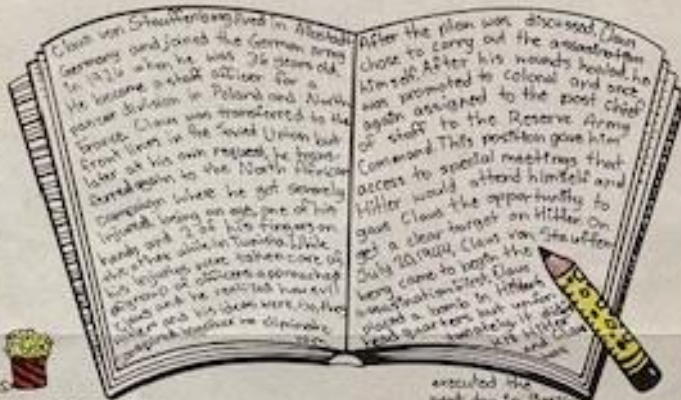 Claus von Stauffenberg lived in
Germany and joined the German army
in 1926 when he was 26 years old.
He become a staff officer for a
panzer division in Poland and North
Claus was transferred to the
front lines in the Soviet Union but
later at his own request, he trans-
ferred again to the North African
campaign where he got severely
injured, losing an eye, one of his
hands and 2 of his fingers on
the other while in Tunisia. While
his injuries were taken care of,
a group of officers approached
Claus and he realized how evil
Hitler and his ideas were. So, they
After the plan was discussed, Claus
chose to carry out the assassination
himself. After his wounds healed, he
was promoted to colonel and once
again assigned to the post chief
of staff to the Reserve Army
Command. This position gave him
access to special meetings that
Hitler would attend himself and
gave Claus the opportunity to
get a clear target on Hitler. On
July 20, 1944, Claus von Stauffen
berg came to begin the
assassination. First, Claus
placed a bomb in Hitler's
head quarters but unfor-
tunately, it
kill Hitler
and Claus
executed the
next day in